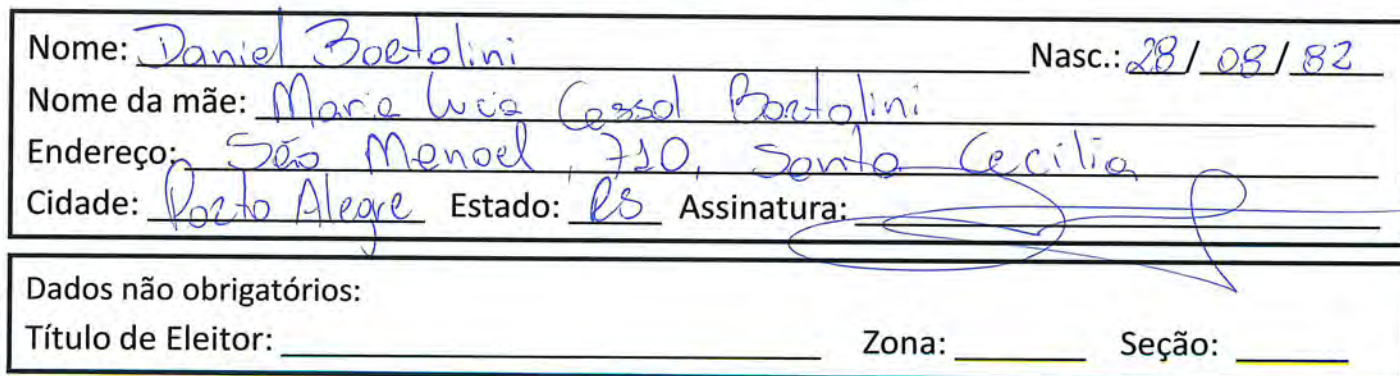 Nome: Daniel Bortolini Nasc.: 28/08/82
Nome da mãe: Maria Lucia Cassol Bortolini
Endereço: São Manoel, 710, Santa Cecilia
Cidade: Porto Alegre Estado: RS Assinatura:
Dados não obrigatórios:
Título de Eleitor: Zona: Seção: